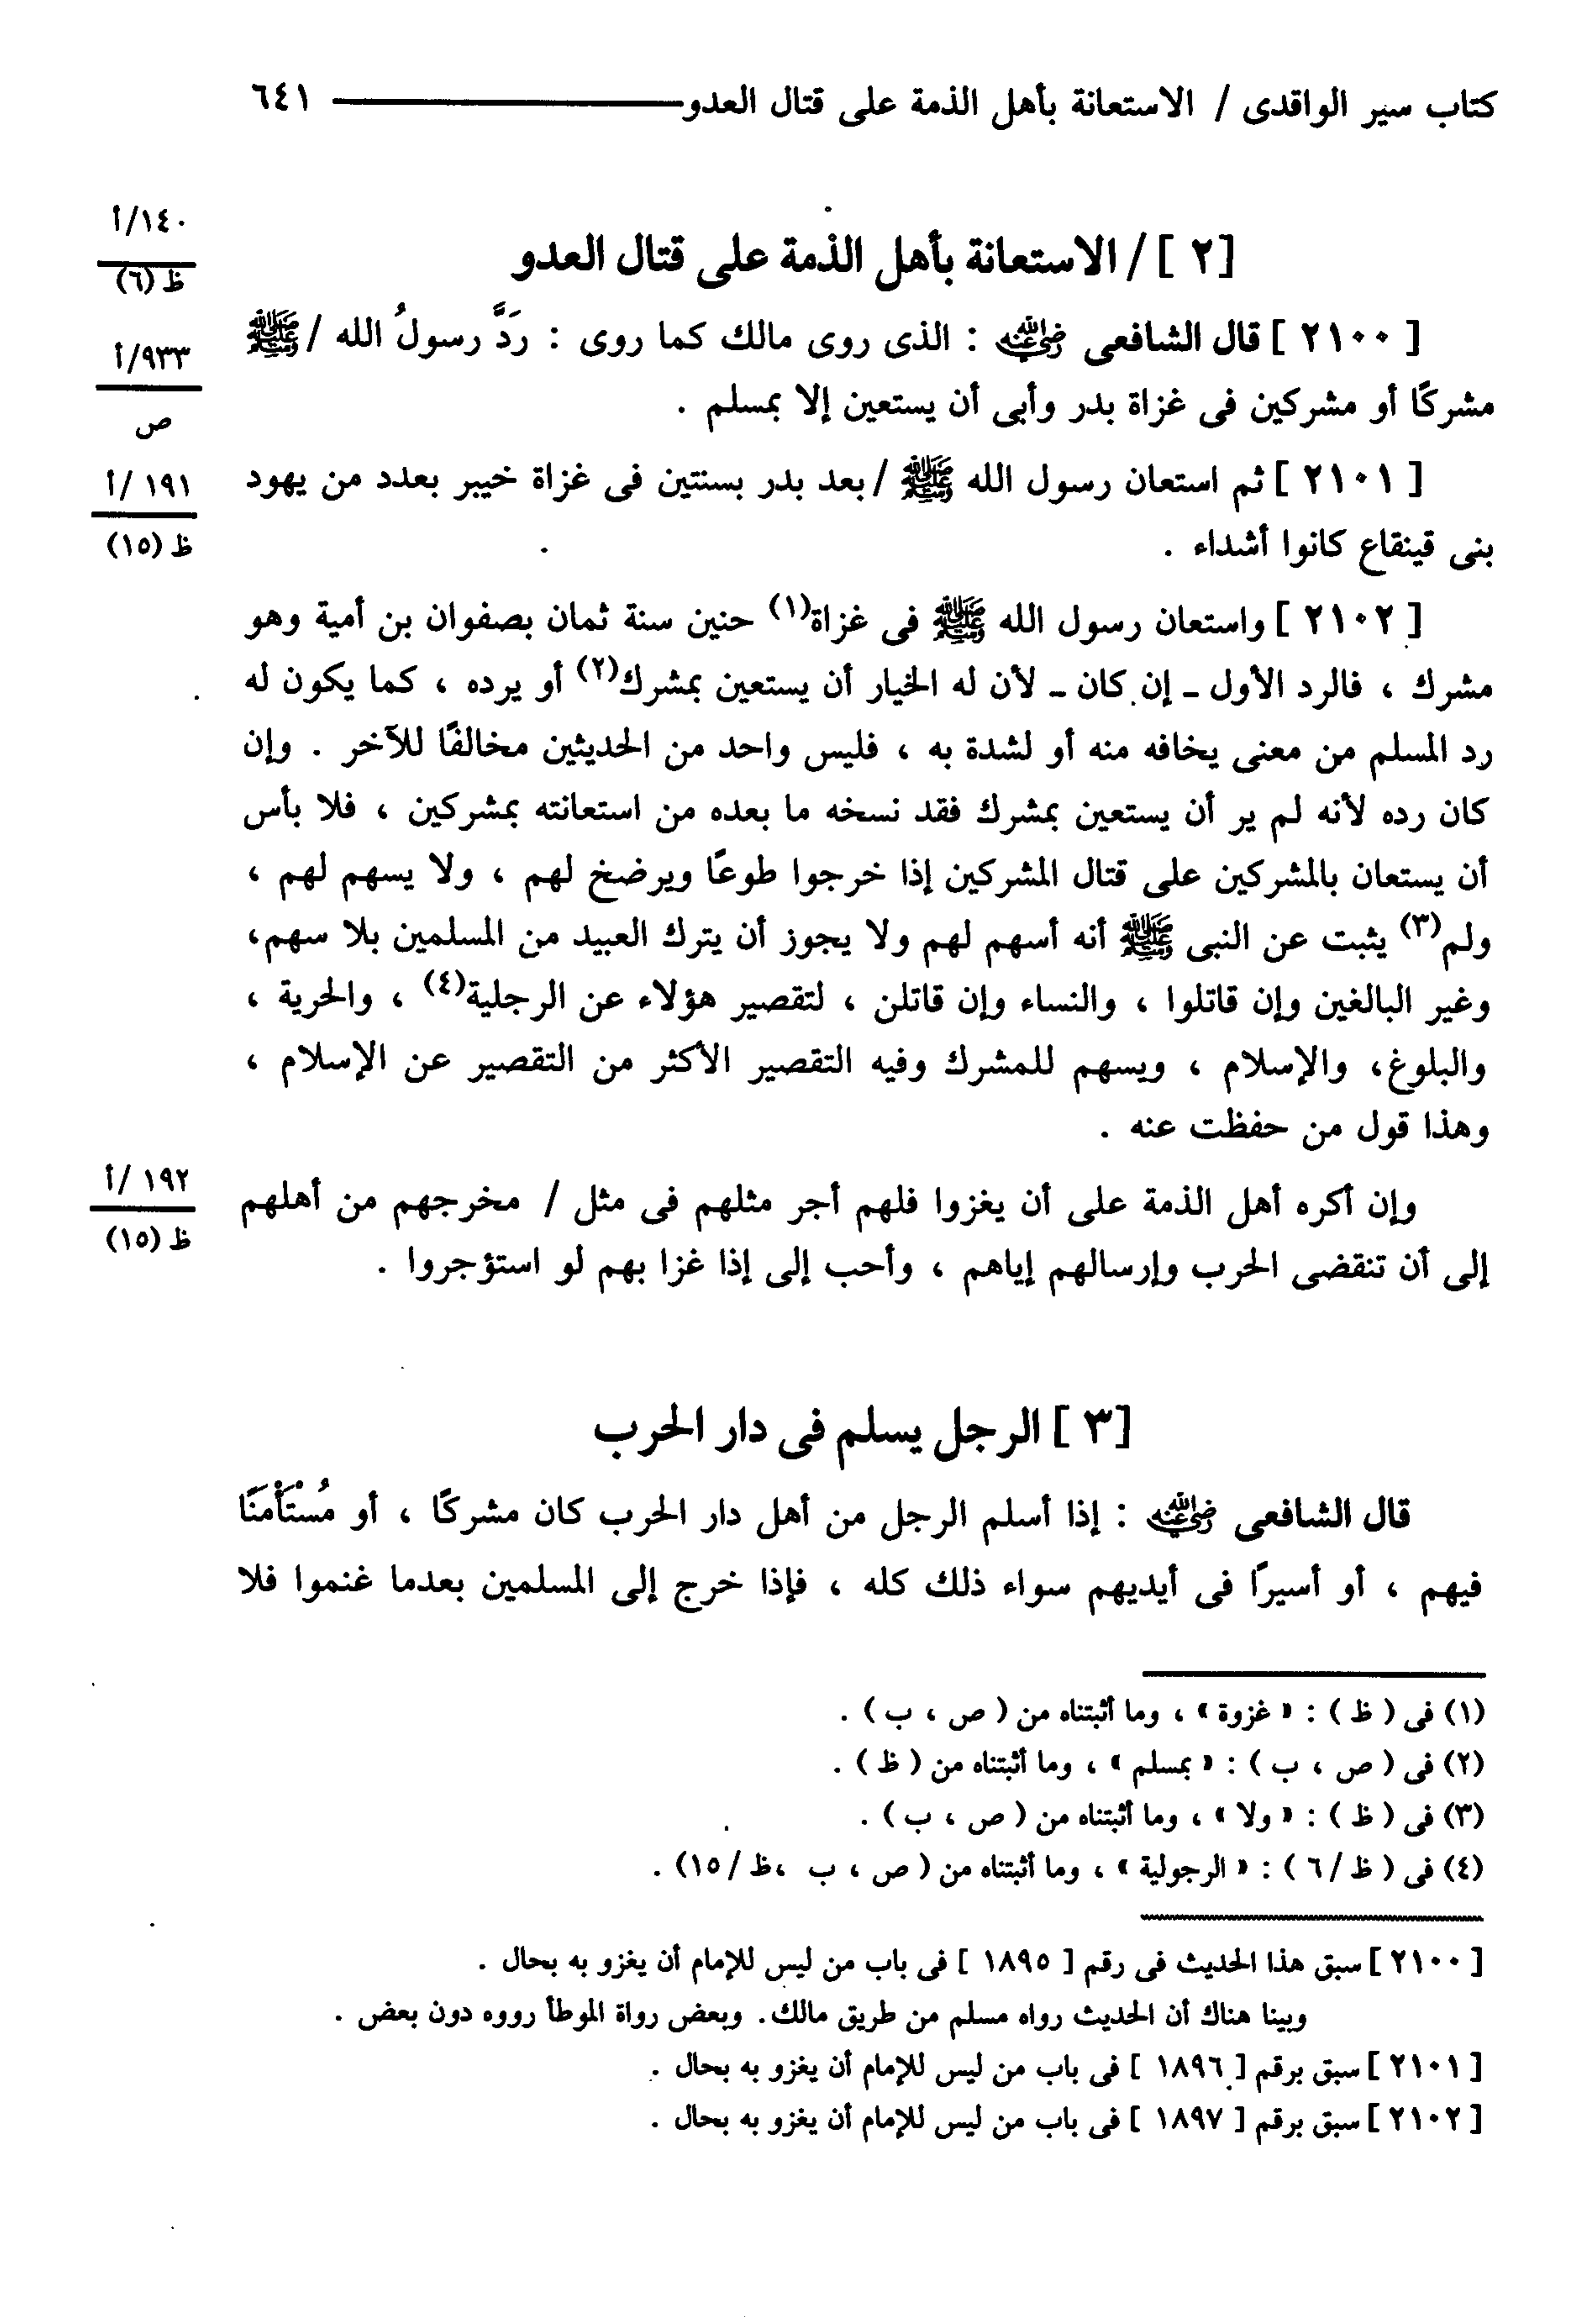 كتاب سير الواقدى / الاستعانة بأهل الذمة على قتال العدو ٦٤١
١٤٠/أ
ظ (٦)
[٢] / الاستعانة بأهل الذمة على قتال العدو
[ ٢١٠٠ ] قال الشافعى رضي الله عنه : الذى روى مالك كما روى : رَدَّ رسولُ الله / ﷺ
٩٣٣/أ
ص
مشركًا أو مشركين فى غزاة بدر وأبى أن يستعين إلا بمسلم .
[ ٢١٠١ ] ثم استعان رسول الله ﷺ / بعد بدر بسنتين فى غزاة خيبر بعدد من يهود
١٩١ /أ
ظ (١٥)
بنى قينقاع كانوا أشداء .
[ ٢١٠٢ ] واستعان رسول الله ﷺ فى غزاة(١) حنين سنة ثمان بصفوان بن أمية وهو
مشرك ، فالرد الأول ـ إن كان ـ لأن له الخيار أن يستعين بمشرك(٢) أو يرده ، كما يكون له
رد المسلم من معنى يخافه منه أو لشدة به ، فليس واحد من الحديثين مخالفًا للآخر . وإن
كان رده لأنه لم ير أن يستعين بمشرك فقد نسخه ما بعده من استعانته بمشركين ، فلا بأس
أن يستعان بالمشركين على قتال المشركين إذا خرجوا طوعًا ويرضخ لهم ، ولا يسهم لهم ،
ولم(٣) يثبت عن النبى ﷺ أنه أسهم لهم ولا يجوز أن يترك العبيد من المسلمين بلا سهم،
وغير البالغين وإن قاتلوا ، والنساء وإن قاتلن ، لتقصير هؤلاء عن الرجلية(٤) ، والحرية ،
والبلوغ، والإسلام ، ويسهم للمشرك وفيه التقصير الأكثر من التقصير عن الإسلام ،
وهذا قول من حفظت عنه .
وإن أكره أهل الذمة على أن يغزوا فلهم أجر مثلهم فى مثل / مخرجهم من أهلهم
١٩٢ /أ
ظ (١٥)
إلى أن تنقضى الحرب وإرسالهم إياهم ، وأحب إلى إذا غزا بهم لو استؤجروا .
[٣] الرجل يسلم فى دار الحرب
قال الشافعى رضي الله عنه : إذا أسلم الرجل من أهل دار الحرب كان مشركًا ، أو مُسْتَأْمَنًا
فيهم ، أو أسيرًا فى أيديهم سواء ذلك كله ، فإذا خرج إلى المسلمين بعدما غنموا فلا
(١) فى ( ظ ) : « غزوة » ، وما أثبتناه من ( ص ، ب ) .
(٢) فى ( ص ، ب ) : « بمسلم » ، وما أثبتناه من ( ظ ) .
(٣) فى ( ظ ) : « ولا » ، وما أثبتناه من ( ص ، ب ) .
(٤) فى ( ظ / ٦ ) : « الرجولية » ، وما أثبتناه من ( ص ، ب ،ظ / ١٥) .
[ ٢١٠٠ ] سبق هذا الحديث فى رقم [ ١٨٩٥ ] فى باب من ليس للإمام أن يغزو به بحال .
وبينا هناك أن الحديث رواه مسلم من طريق مالك. وبعض رواة الموطأ رووه دون بعض .
[ ٢١٠١ ] سبق برقم [ ١٨٩٦ ] فى باب من ليس للإمام أن يغزو به بحال .
[ ٢١٠٢ ] سبق برقم [ ١٨٩٧ ] فى باب من ليس للإمام أن يغزو به بحال .